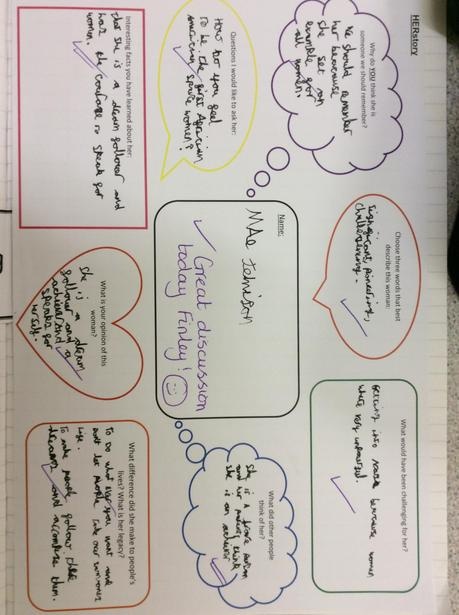 HERstory
Why do YOU think she is
someone we should remember?
We should remember
her because
she set an
example for
all women.
Questions I would like to ask her:
How do you feel
to be the first African
American space women?
Interesting facts you have learned about her:
that she is a dream follower and
has the courage to speak for
women.
Name:
Mae Jemison
Great discussion
today Finley!
Choose three words that best
describe this woman:
Significant, pioneering,
challenging.
What is your opinion of this
woman?
she is a dream
follower and a
achiever and
speaks for
herself.
What would have been challenging for her?
getting into NASA because women
where very unnoticed.
What did other people
think of her?
she is a brave person
and her family think
she is an
What difference did she make to people's
lives? What is her legacy?
To do what ever you want and
not let people take over
life.
To make people follow their
dreams and accomplish them.